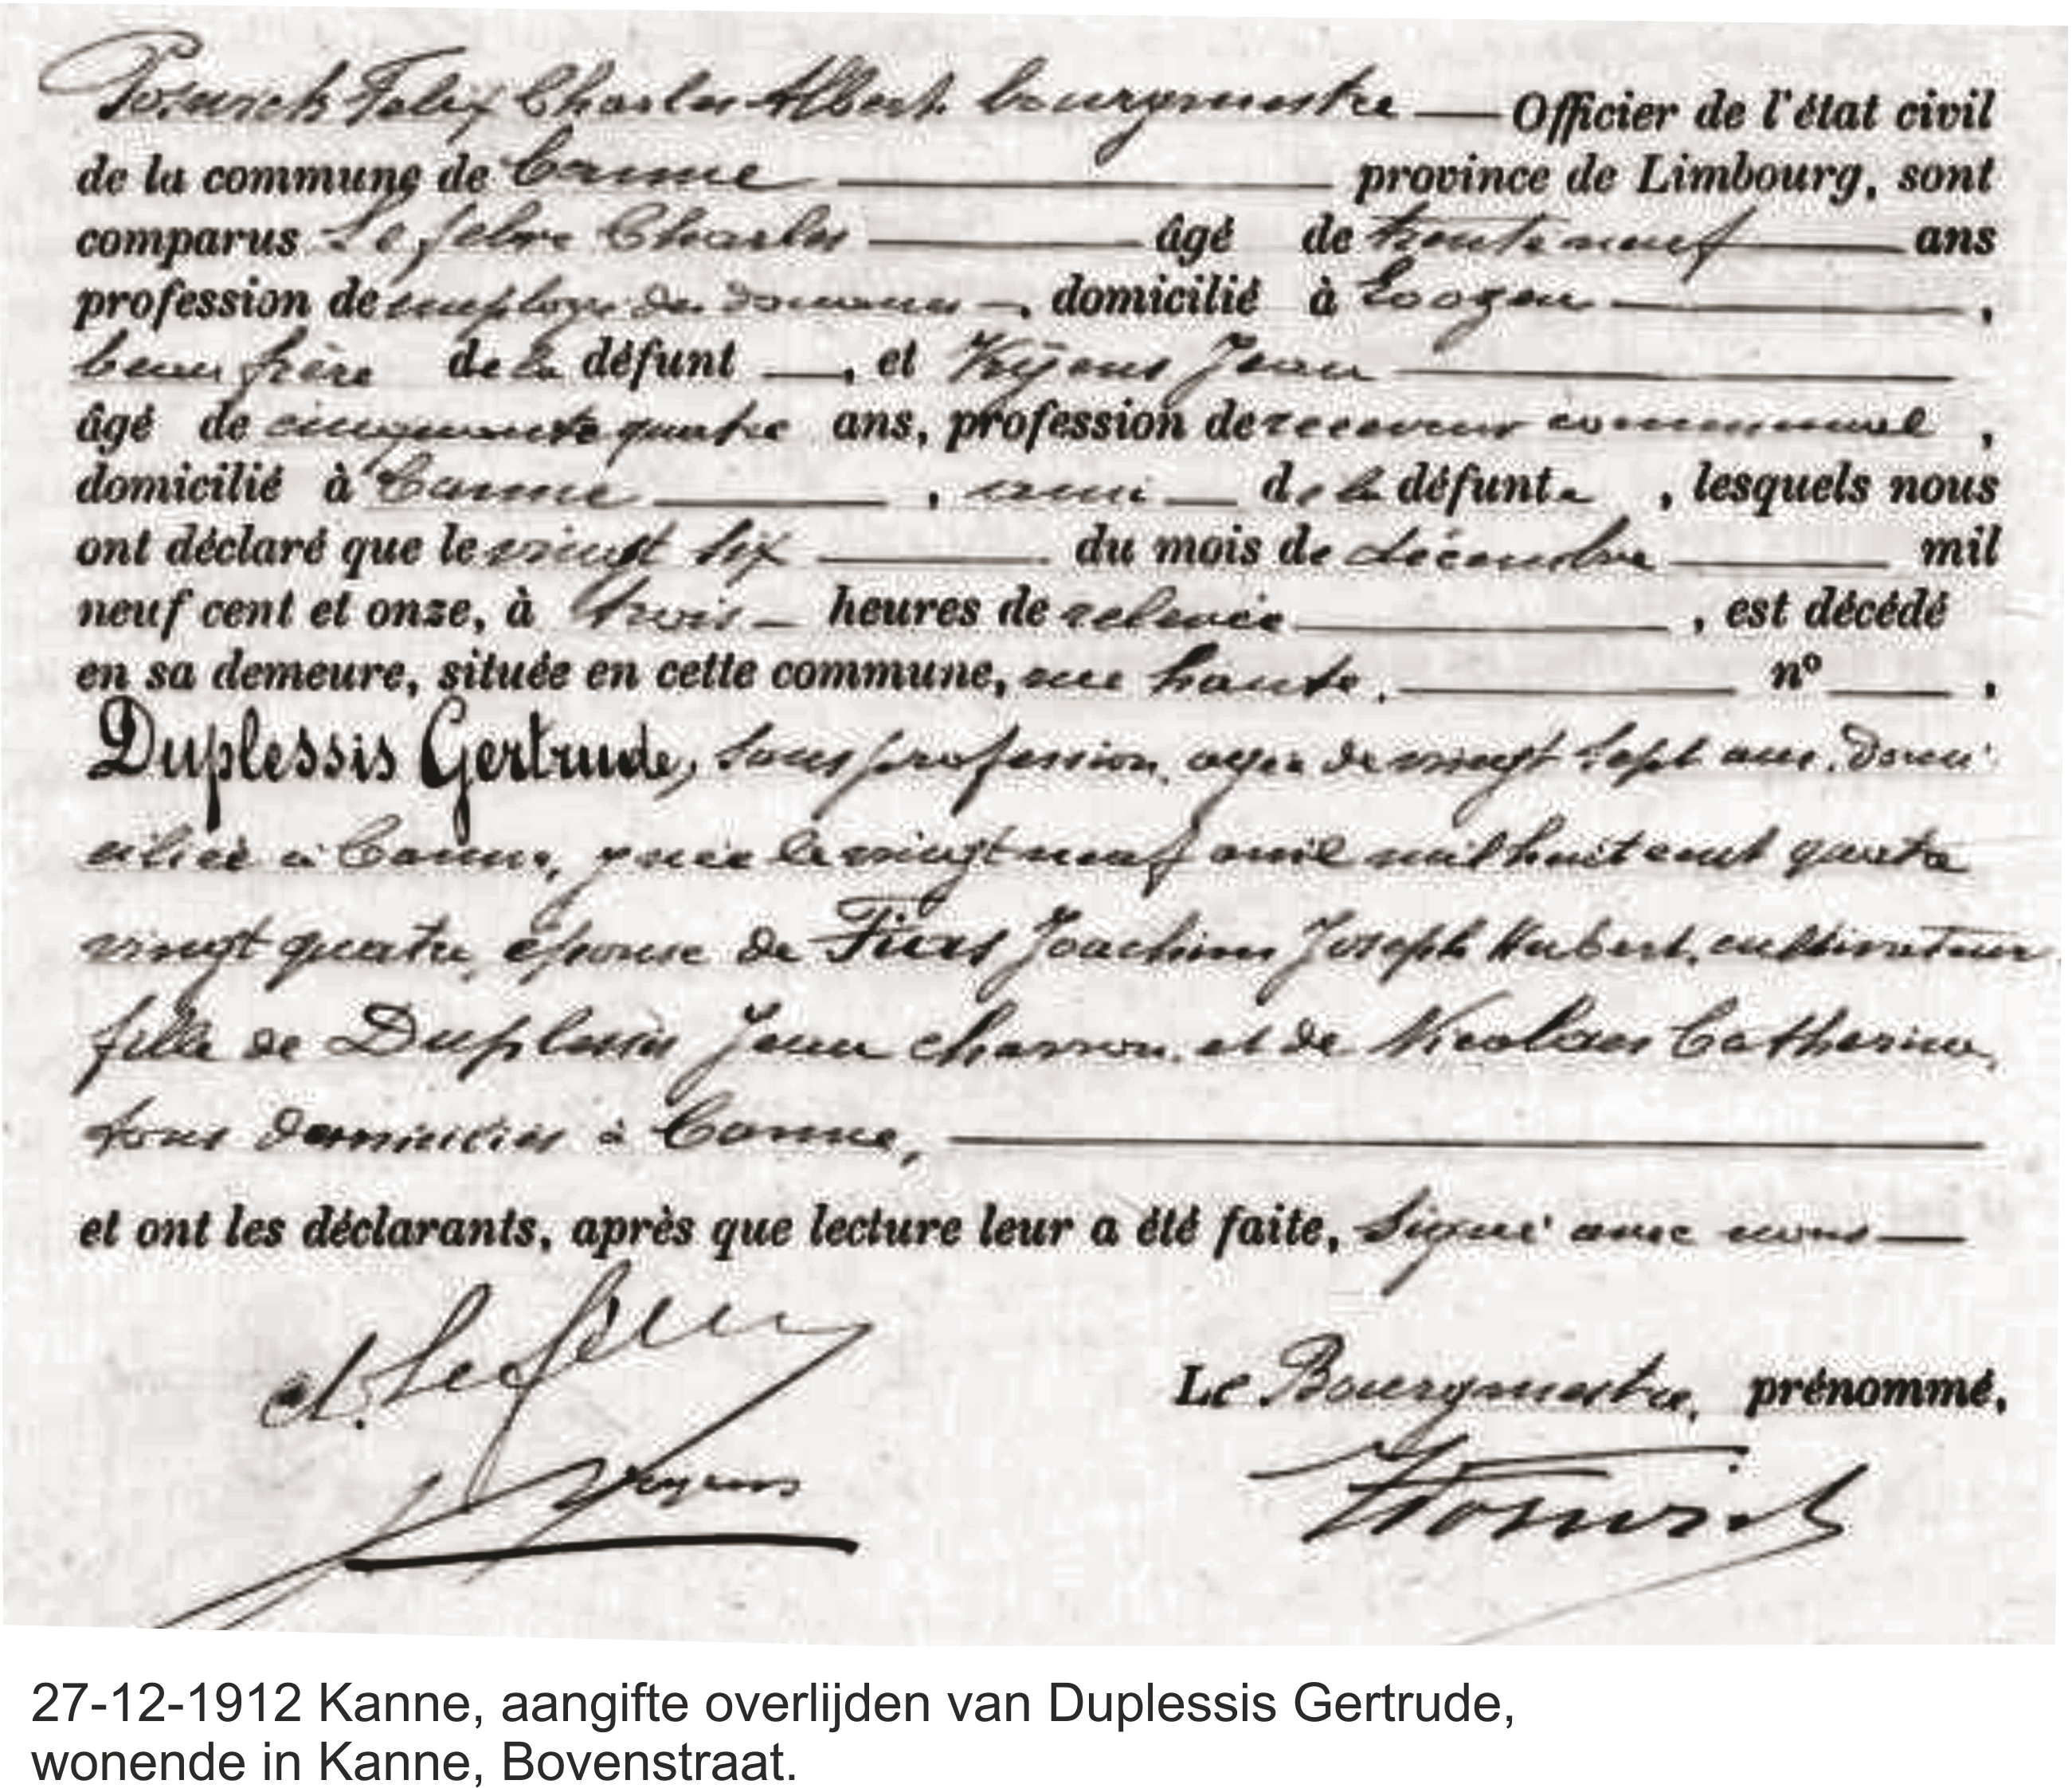 Felix Charles Albert bourgmestre — Officier de l'état civil
de la commune de Canne province de Limbourg, sont
comparus Lefebvre Charles âgé de trente neuf ans
profession de employé des douanes, domicilié à ,
beau frère de la défunt —, et Jean
âgé de cinquante quatre ans, profession de receveur communal,
domicilié à Canne, ami de la défunte, lesquels nous
ont déclaré que le vingt six du mois de décembre mil
neuf cent et onze, à trois heures de relevée, est décédé
en sa demeure, située en cette commune, rue haute, nº .
Duplessis Gertrude, sans profession, agée de vingt sept ans, domi
ciliée à Canne, y née le vingt neuf avril mil huit cent quatre
vingt quatre, épouse de Joachim Joseph Hubert, cultivateur
fille de Duplessis Jean charron, et de Nicolaes Catherine,
tous domiciliés à Canne,
et ont les déclarants, après que lecture leur a été faite, signé avec nous
Le Bourgmestre, prénommé,
27-12-1912 Kanne, aangifte overlijden van Duplessis Gertrude,
wonende in Kanne, Bovenstraat.